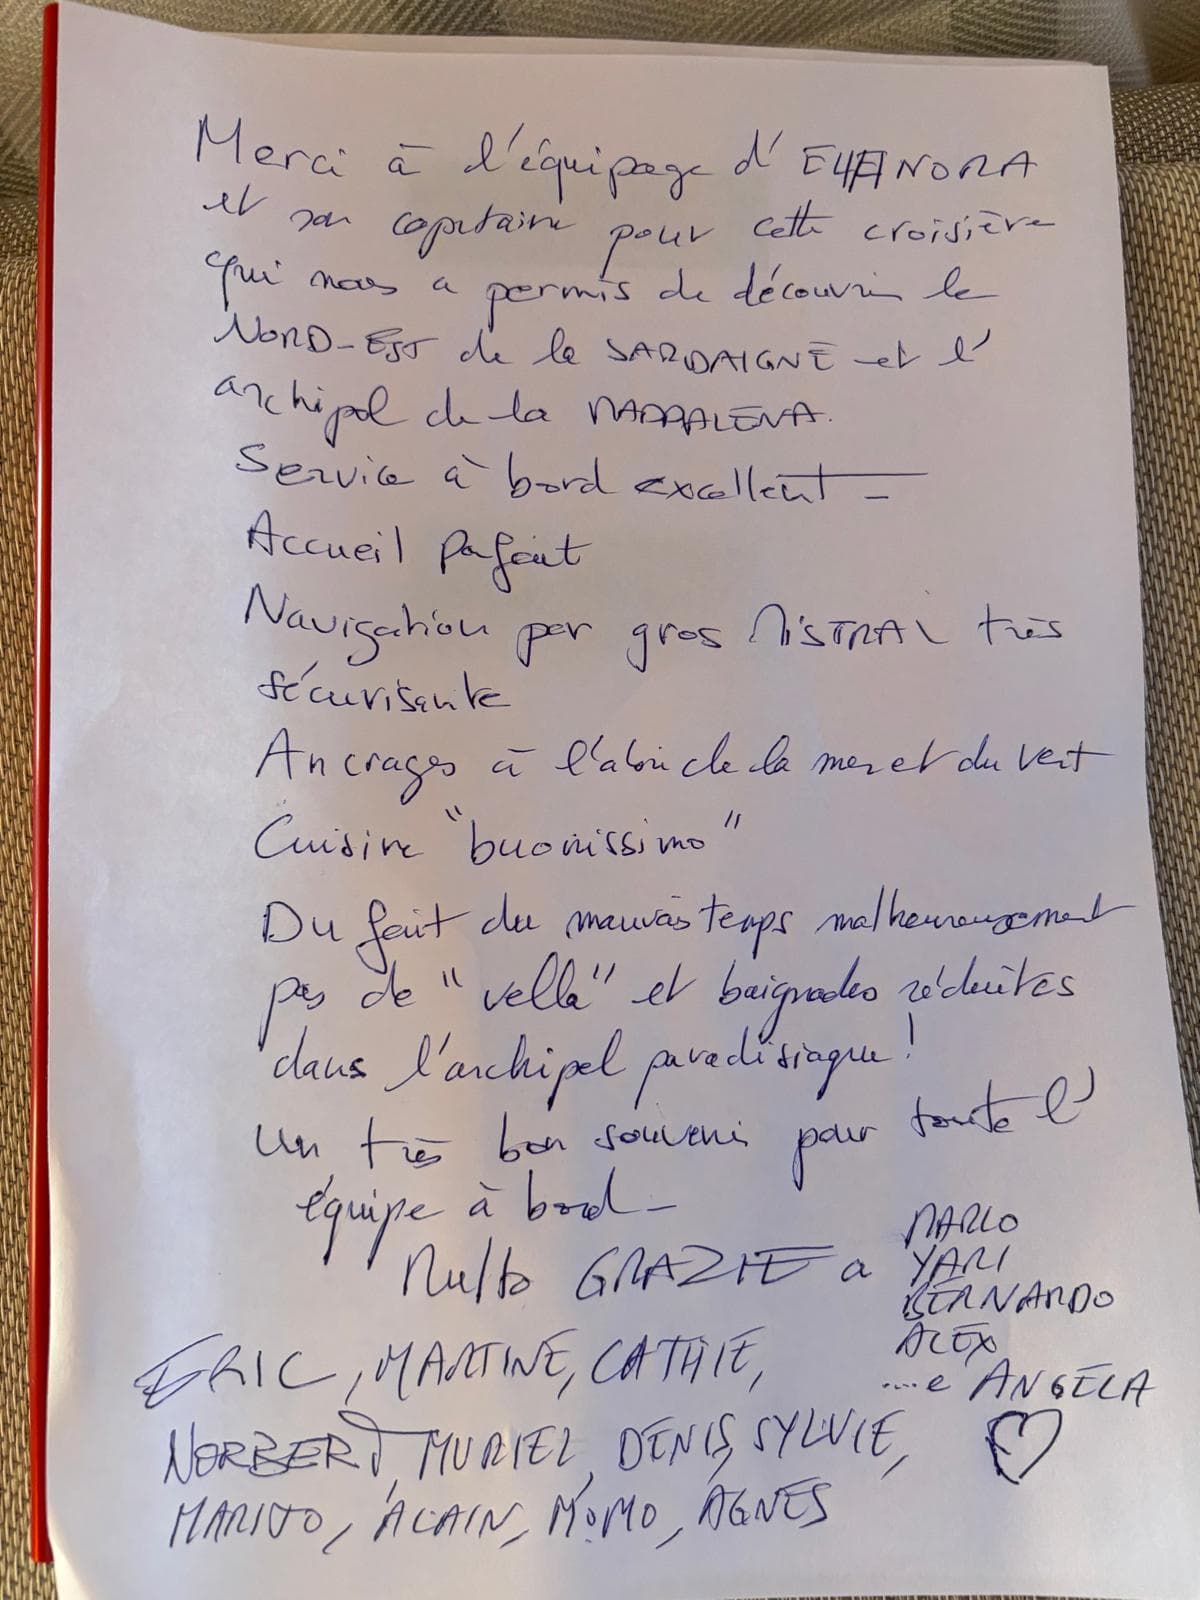 Merci à l'équipage d'
et son capitaine pour cette croisière
qui nous a permis de découvrir le
NORD-EST de la SARDAIGNE et l'
archipel de la MADDALENA.
Service à bord excellent -
Accueil parfait
Navigation par gros MISTRAL très
sécurisante
Ancrages à l'abri de la mer et du vent
Cuisine "buonissimo"
Du fait du mauvais temps malheureusement
pas de "vella" et baignades réduites
dans l'archipel paradisiaque !
Un très bon souvenir pour toute l'
équipe à bord -
Multo GRAZIE a MARCO
YARI
BERNARDO
ALEX
....e ANGELA
ERIC, MARTINE, CATHIE,
NORBERT, MURIEL, DENIS, SYLVIE,
ALAIN, MOMO, AGNES